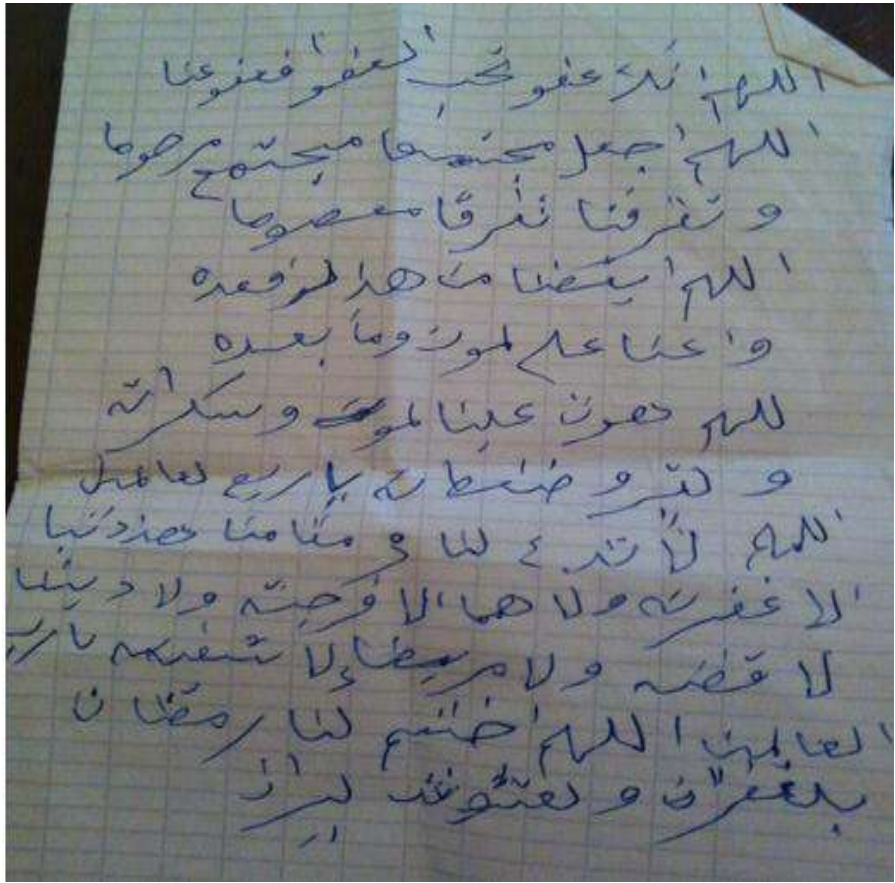 اللهم انك عفو تحب العفوا فعفوعنا
اللهم اجعل مجتمعنا مجتمع مرحوما
وتفرقنا تفرقا معصوما
اللهم هدا
واعنا علم لموت وما بعده
للهم هون علينا لموت وسكراته
و يارب لعالمين
اللهم لا تدع لنا في مقامنا هذا دنبا
الا غفرته ولا هما الا فرجته ولا دينا
لا قضته ولا مريضا إلا شفيته يارب
العالمين اللهم اختتم لنا رمضان
بلغفران